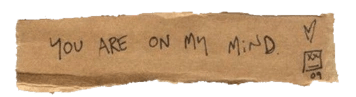 YOU ARE ON MY MIND.
XX
09